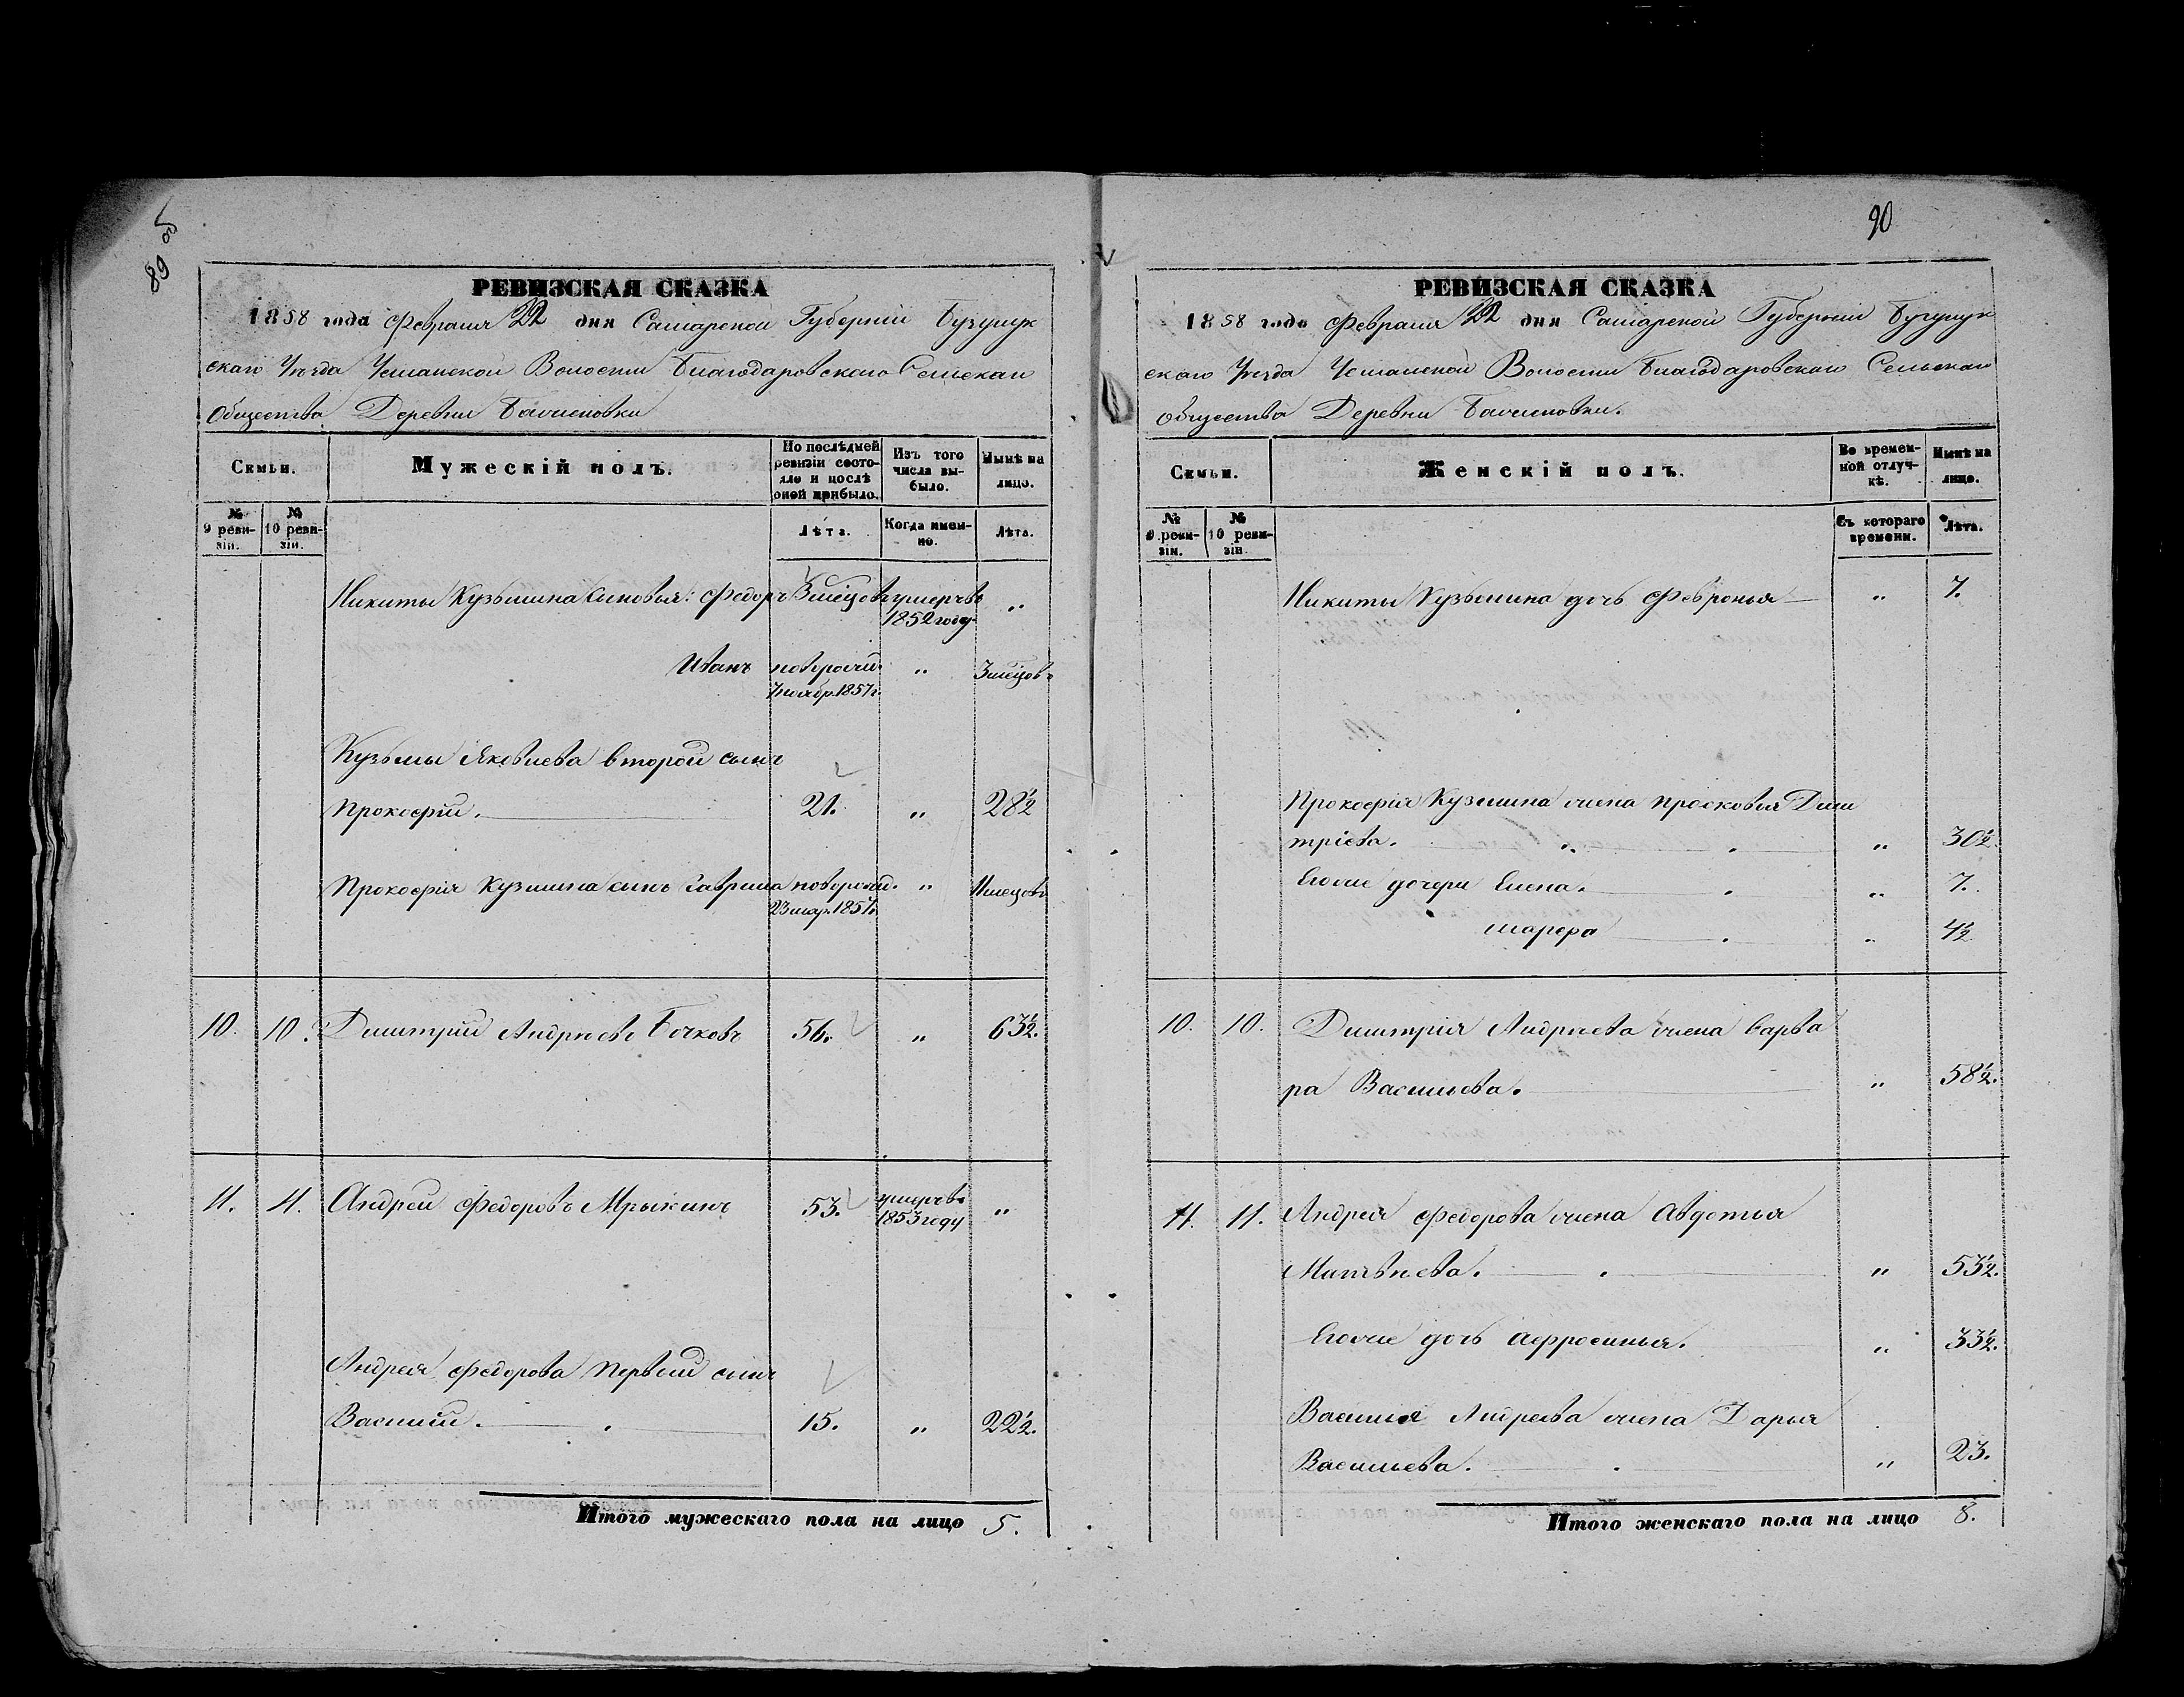 89
90
РЕВИЗСКАЯ СКАЗКА
1858 года Февраля 22 дня Самарской Губерніи Бузулук
скаго Уѣзда Усманской Волости Благодаровскаго Сельскаго
Общества Деревни
Семьи.
Мужескій полъ.
По послѣдней ревизіи состояло и послѣ оной прибыло.
Изъ того числа выбыло.
Нынѣ на лицо.
№ 9 ревизіи.
№ 10 ревизіи.
Лѣта.
Когда именно.
Лѣта.
Никиты Кузьмина сыновья: Федоръ 3 мѣсцовъ умеръ въ 1852 году „
Иванъ новорожд. 7 ноябр. 1857 г. „ 3 мѣсцовъ
Кузьмы Яковлева второй сынъ
Прокофій. 21. „ 28½
Прокофія Кузмина сынъ Гаврила новорожд. 23 мар. 1857 г. „ 11 месцовъ
10. 10. Дмитрій Андрѣевъ Бочковъ 56. „ 63½.
11. 11. Андрей Федоровъ Мрыкинъ 53. умеръ въ 1853 году „
Андрея Федорова первый сынъ
Василій. 15. „ 22½.
Итого мужескаго пола на лицо 5.
РЕВИЗСКАЯ СКАЗКА
1858 года Февраля 22 дня Самарской Губерніи Бузулук
скаго Уѣзда Усманской Волости Благодаровскаго Сельскаго
Общества Деревни
Семьи.
Женскій полъ.
Во временной отлучкѣ.
Нынѣ на лицо.
№ 9 ревизіи.
№ 10 ревизіи.
Съ котораго времени.
Лѣта.
Никиты Кузьмина дочь Февронья „ 7.
Прокофія Кузмина жена Просковья Дми
тріева. „ 30½
Егоже дочери Елена. „ 7.
Марфа „ 4½
10. 10. Дмитрія Андрѣева жена Варва
ра Васильева. „ 58½.
11. 11. Андрея Федорова жена Авдотья
Матвѣева. „ 53½.
Егоже дочь Афросинья. „ 33½.
Василья Андреева жена Дарья
Васильева. „ 23.
Итого женскаго пола на лицо 8.